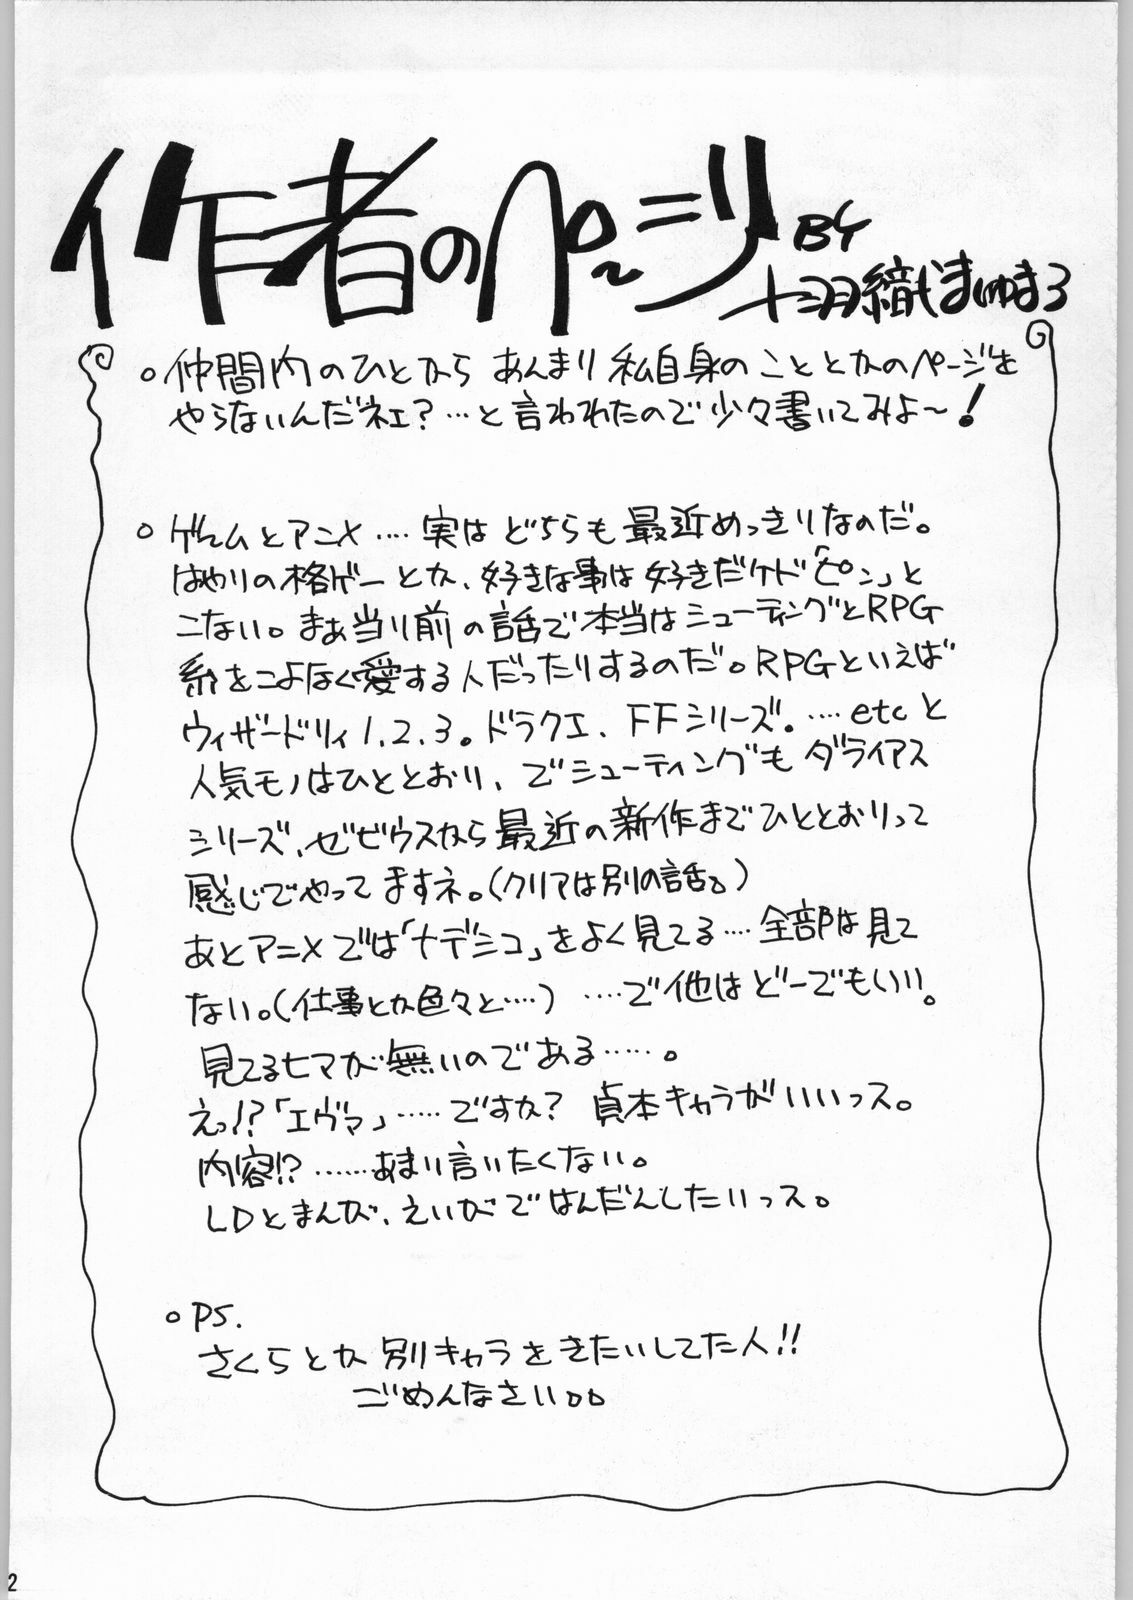 作者のページ BY
十羽織ましゅまろ
○仲間内のひとから あんまり 私自身のこととかのページを
やらないんだネェ?…と言われたので少々書いてみよ〜!
○ゲームとアニメ…. 実はどちらも最近めっきりなのだ。
はやりの格ゲーとか、好きな事は好きだケド「ピン」と
こない。まぁ当り前の話で本当はシューティングとRPG
系をこよなく愛する人だったりするのだ。RPGといえば
ウィザードリィ1.2.3。ドラクエ、FFシリーズ。….etcと
人気モノはひととおり、でシューティングもダライアス
シリーズ、ゼビウスなら最近の新作までひととおりって
感じでやってますネ。(クリアは別の話。)
あとアニメでは「ナデシコ」をよく見てる….全部は見て
ない。(仕事とか色々と….) ….で他はどーでもいい。
見てるヒマが無いのである…..。
えっ!?「エヴァ」…..ですか? 貞本キャラがいいっス。
内容!? ……あまり言いたくない。
LDとまんが、えいがではんだんしたいっス。
○PS.
さくらとか別キャラをきたいしてた人!!
ごめんなさい。。
2